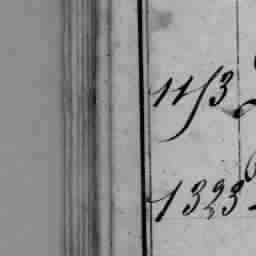 1153
1323